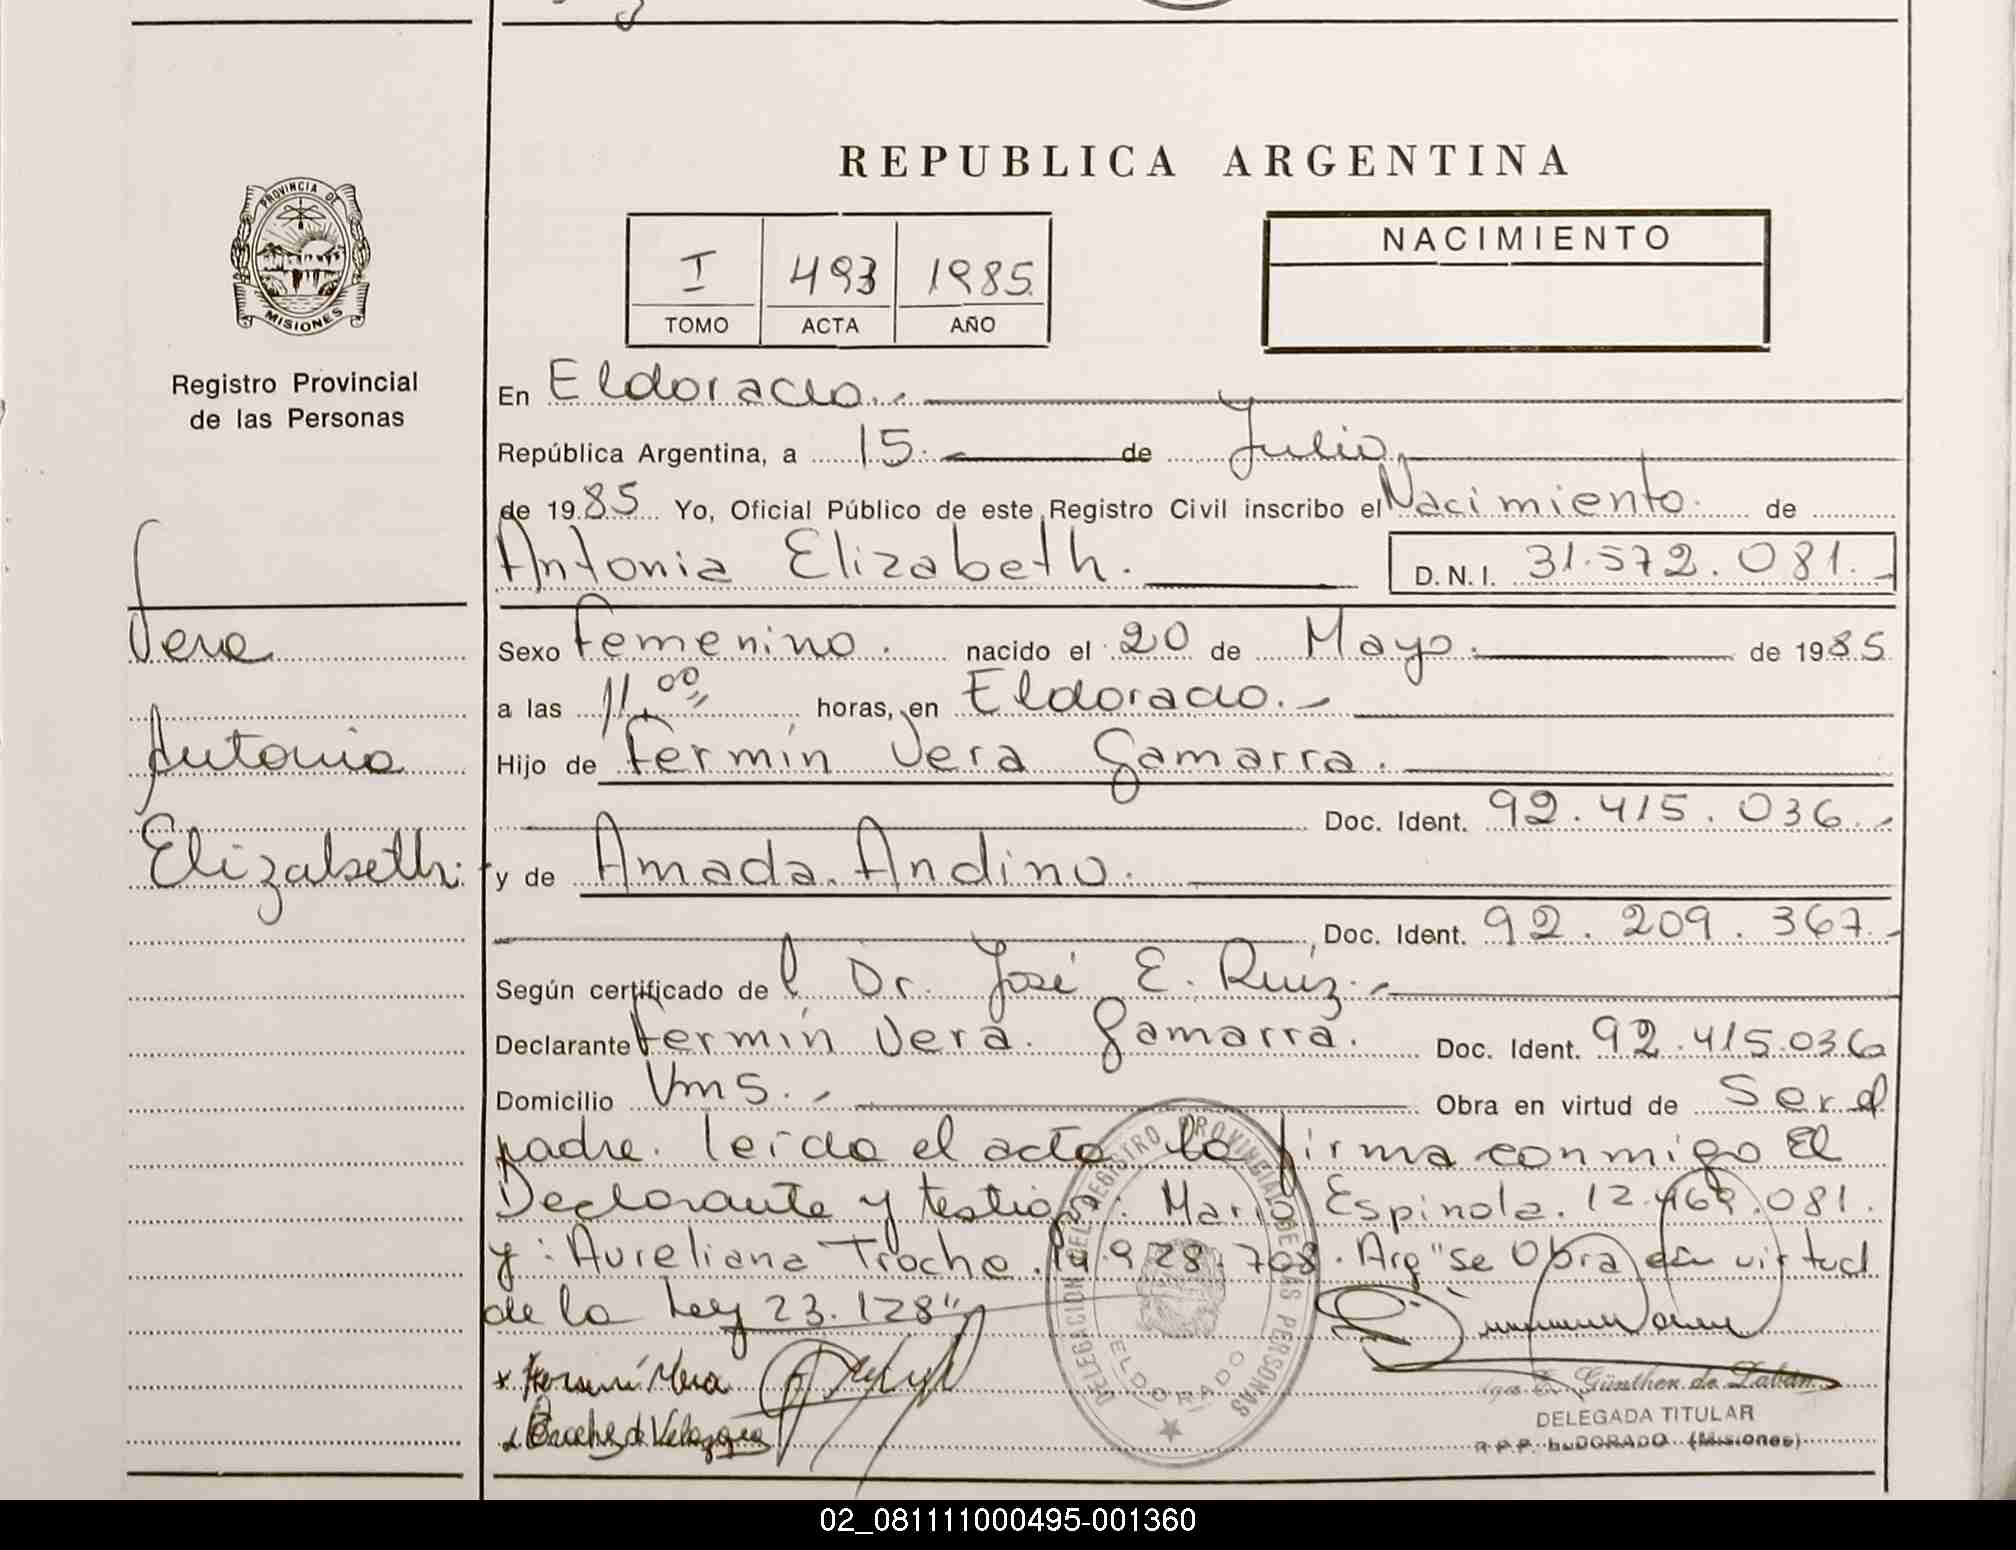 REPUBLICA ARGENTINA
PROVINCIA DE
MISIONES
Registro Provincial
de las Personas
I 493 1985
TOMO ACTA AÑO
NACIMIENTO
En Eldorado.-
República Argentina, a 15. de Julio,
de 1985 Yo, Oficial Público de este Registro Civil inscribo el Nacimiento. de
Antonia Elizabeth. D.N.I. 31.572.081.-
Vera
Antonia
Elizabeth.
Sexo Femenino. nacido el 20 de Mayo. de 1985
a las 11,00 horas, en Eldorado.-
Hijo de Fermín Vera Gamarra.
Doc. Ident. 92.415.036.-
y de Amada Andino.
Doc. Ident. 92.209.367.-
Según certificado del Dr. José E. Ruíz.-
Declarante Fermín Vera. Gamarra. Doc. Ident. 92.415.036
Domicilio Vms.- Obra en virtud de Ser el
padre. leída el acta la firma conmigo El
Declarante y testigos: Mario Espinola. 12.469.081.
y: Aureliana Troche. 14.928.708. Arg "Se Obra en virtud
de la Ley 23.128"
DELEGACION DEL REGISTRO PROVINCIAL DE LAS PERSONAS
ELDORADO
Günther de Labán
DELEGADA TITULAR
R.P.P. ELDORADO (Misiones)
02_081111000495-001360